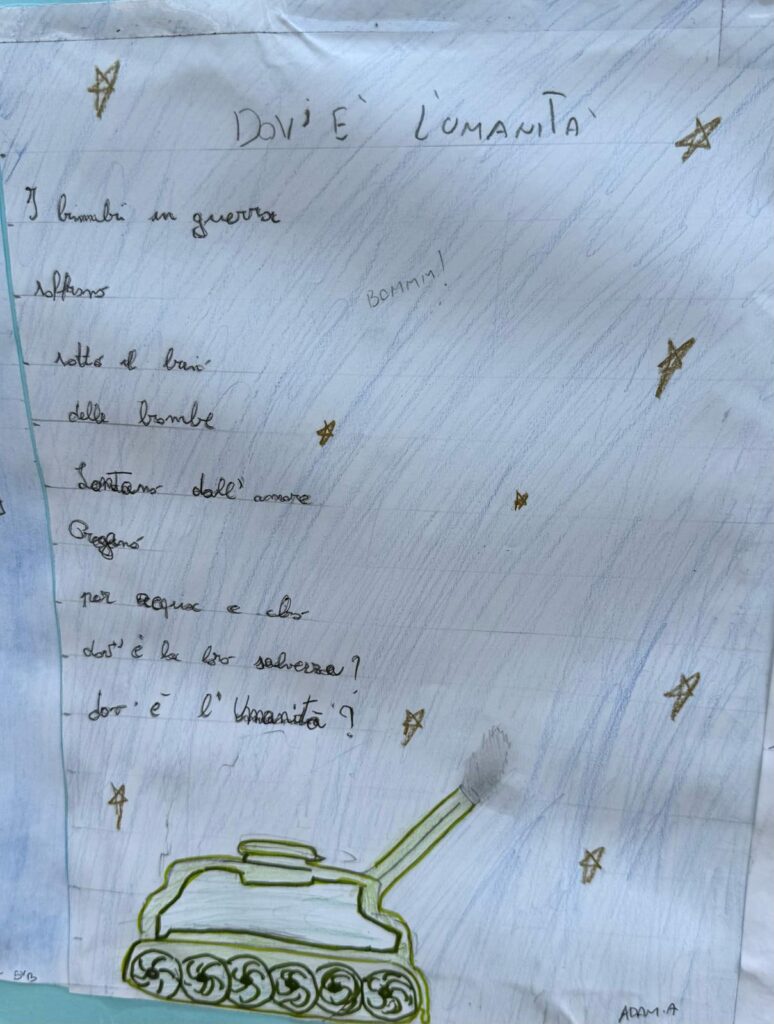 DOV'E' L'UMANITA'
I bimbi in guerra
soffrono
BOMMM!
sotto il
delle bombe
Lontano dall'amore
Pregano
per acqua e cibo
dov'è la loro salvezza?
dov'è l'Umanità?
ADAM.A